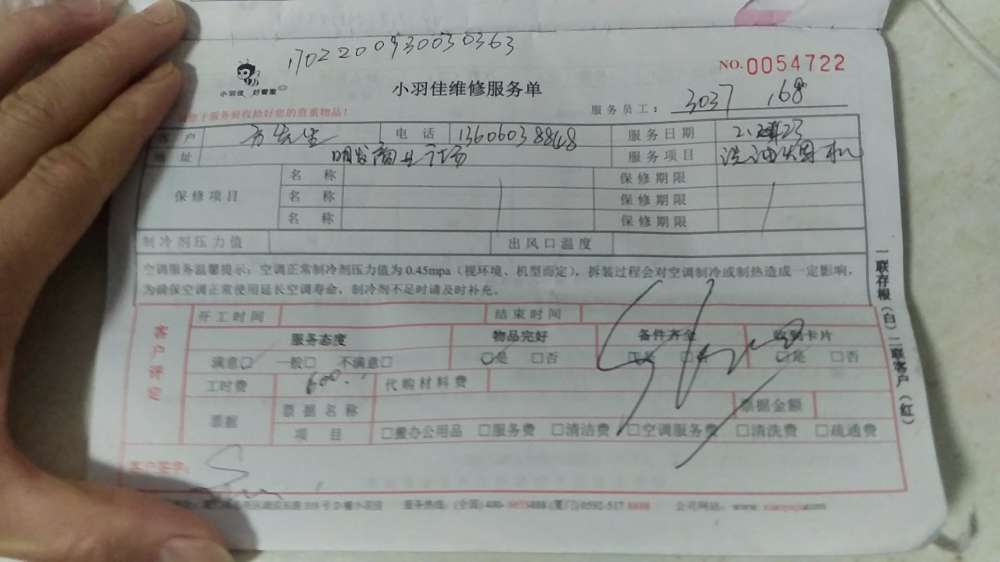 1702200930030363
NO.0054722
小羽佳 好管家
小羽佳维修服务单
服务员工: 3037 168
客户 方先生 电话 13606038848 服务日期
地址 明发商业广场 服务项目 洗油烟机
保修项目 名称 保修期限
名称 保修期限
名称 保修期限
制冷剂压力值 出风口温度
空调服务温馨提示:空调正常制冷剂压力值为0.45mpa(视环境、机型而定),拆装过程会对空调制冷或制热造成一定影响,
为确保空调正常使用延长空调寿命,制冷剂不足时请及时补充。
客户评定 开工时间 结束时间
服务态度 物品完好 备件齐全 收到卡片
满意□ 一般□ 不满意□ □是 □否 □是 □是 □否
工时费 600 代购材料费
票据 票据名称 票据金额
项目 □办公用品 □服务费 □清洁费 □空调服务费 □清洗费 □疏通费
客户签字:
一联存根(白)二联客户(红)
服务热线:(全国)400- (厦门)0592-517 公司网站:www.xiaoyujia.com